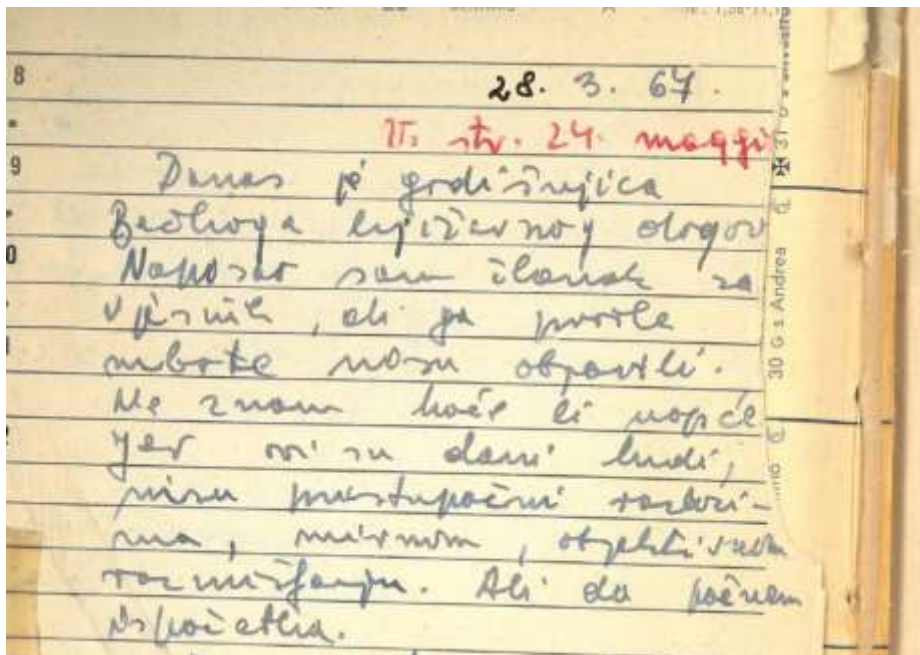 8
28. 3. 67.
V. str. 24. maggi
9
Danas je godišnjica
Bečkoga književnog dogov
0
Napisao sam članak za
Vjesnik, ali ga prošle
subote nisu objavili.
Ne znam hoće li uopće
jer ovi su dani ludi,
nisu pristupačni razlozi-
ma, mirnom, objektivnom
razmišljanju. Ali da počnem
ispočetka.
30 G s Andrea